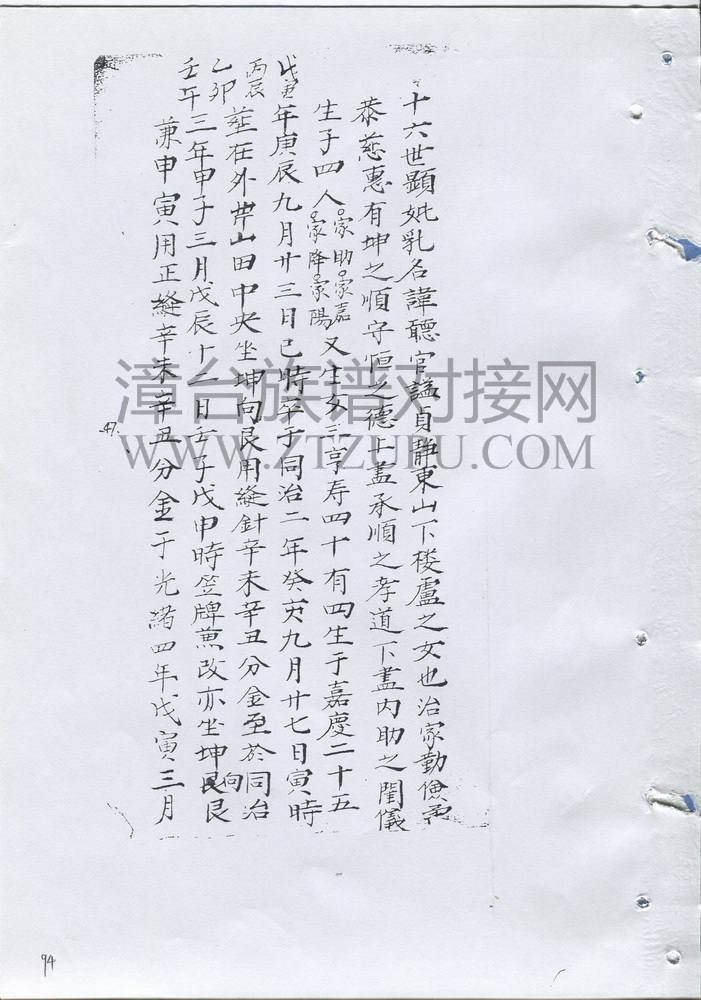 十六世顯妣乳名諱聽官謚貞靜東山下楼盧之女也治家勤儉
恭慈惠有坤之順守恒之德上盖承順之孝道下盖内助之閨儀
生子四人家助家嘉家降家陽又生女三享寿四十有四生于嘉慶二十五
年庚辰九月廿三日巳時卒于同治二年癸亥九月廿七日寅時
戊寅
塟在外山田中央坐坤向艮用縫針辛未辛丑分金至於同治
丙辰
三年甲子三月戊辰十一日壬子戊申時笠牌改亦坐坤向艮
乙卯
壬午
兼申寅用正縫辛未辛丑分金于光緒四年戊寅三月
47.
94
漳台族谱对接网
WWW.ZTZUPU.COM